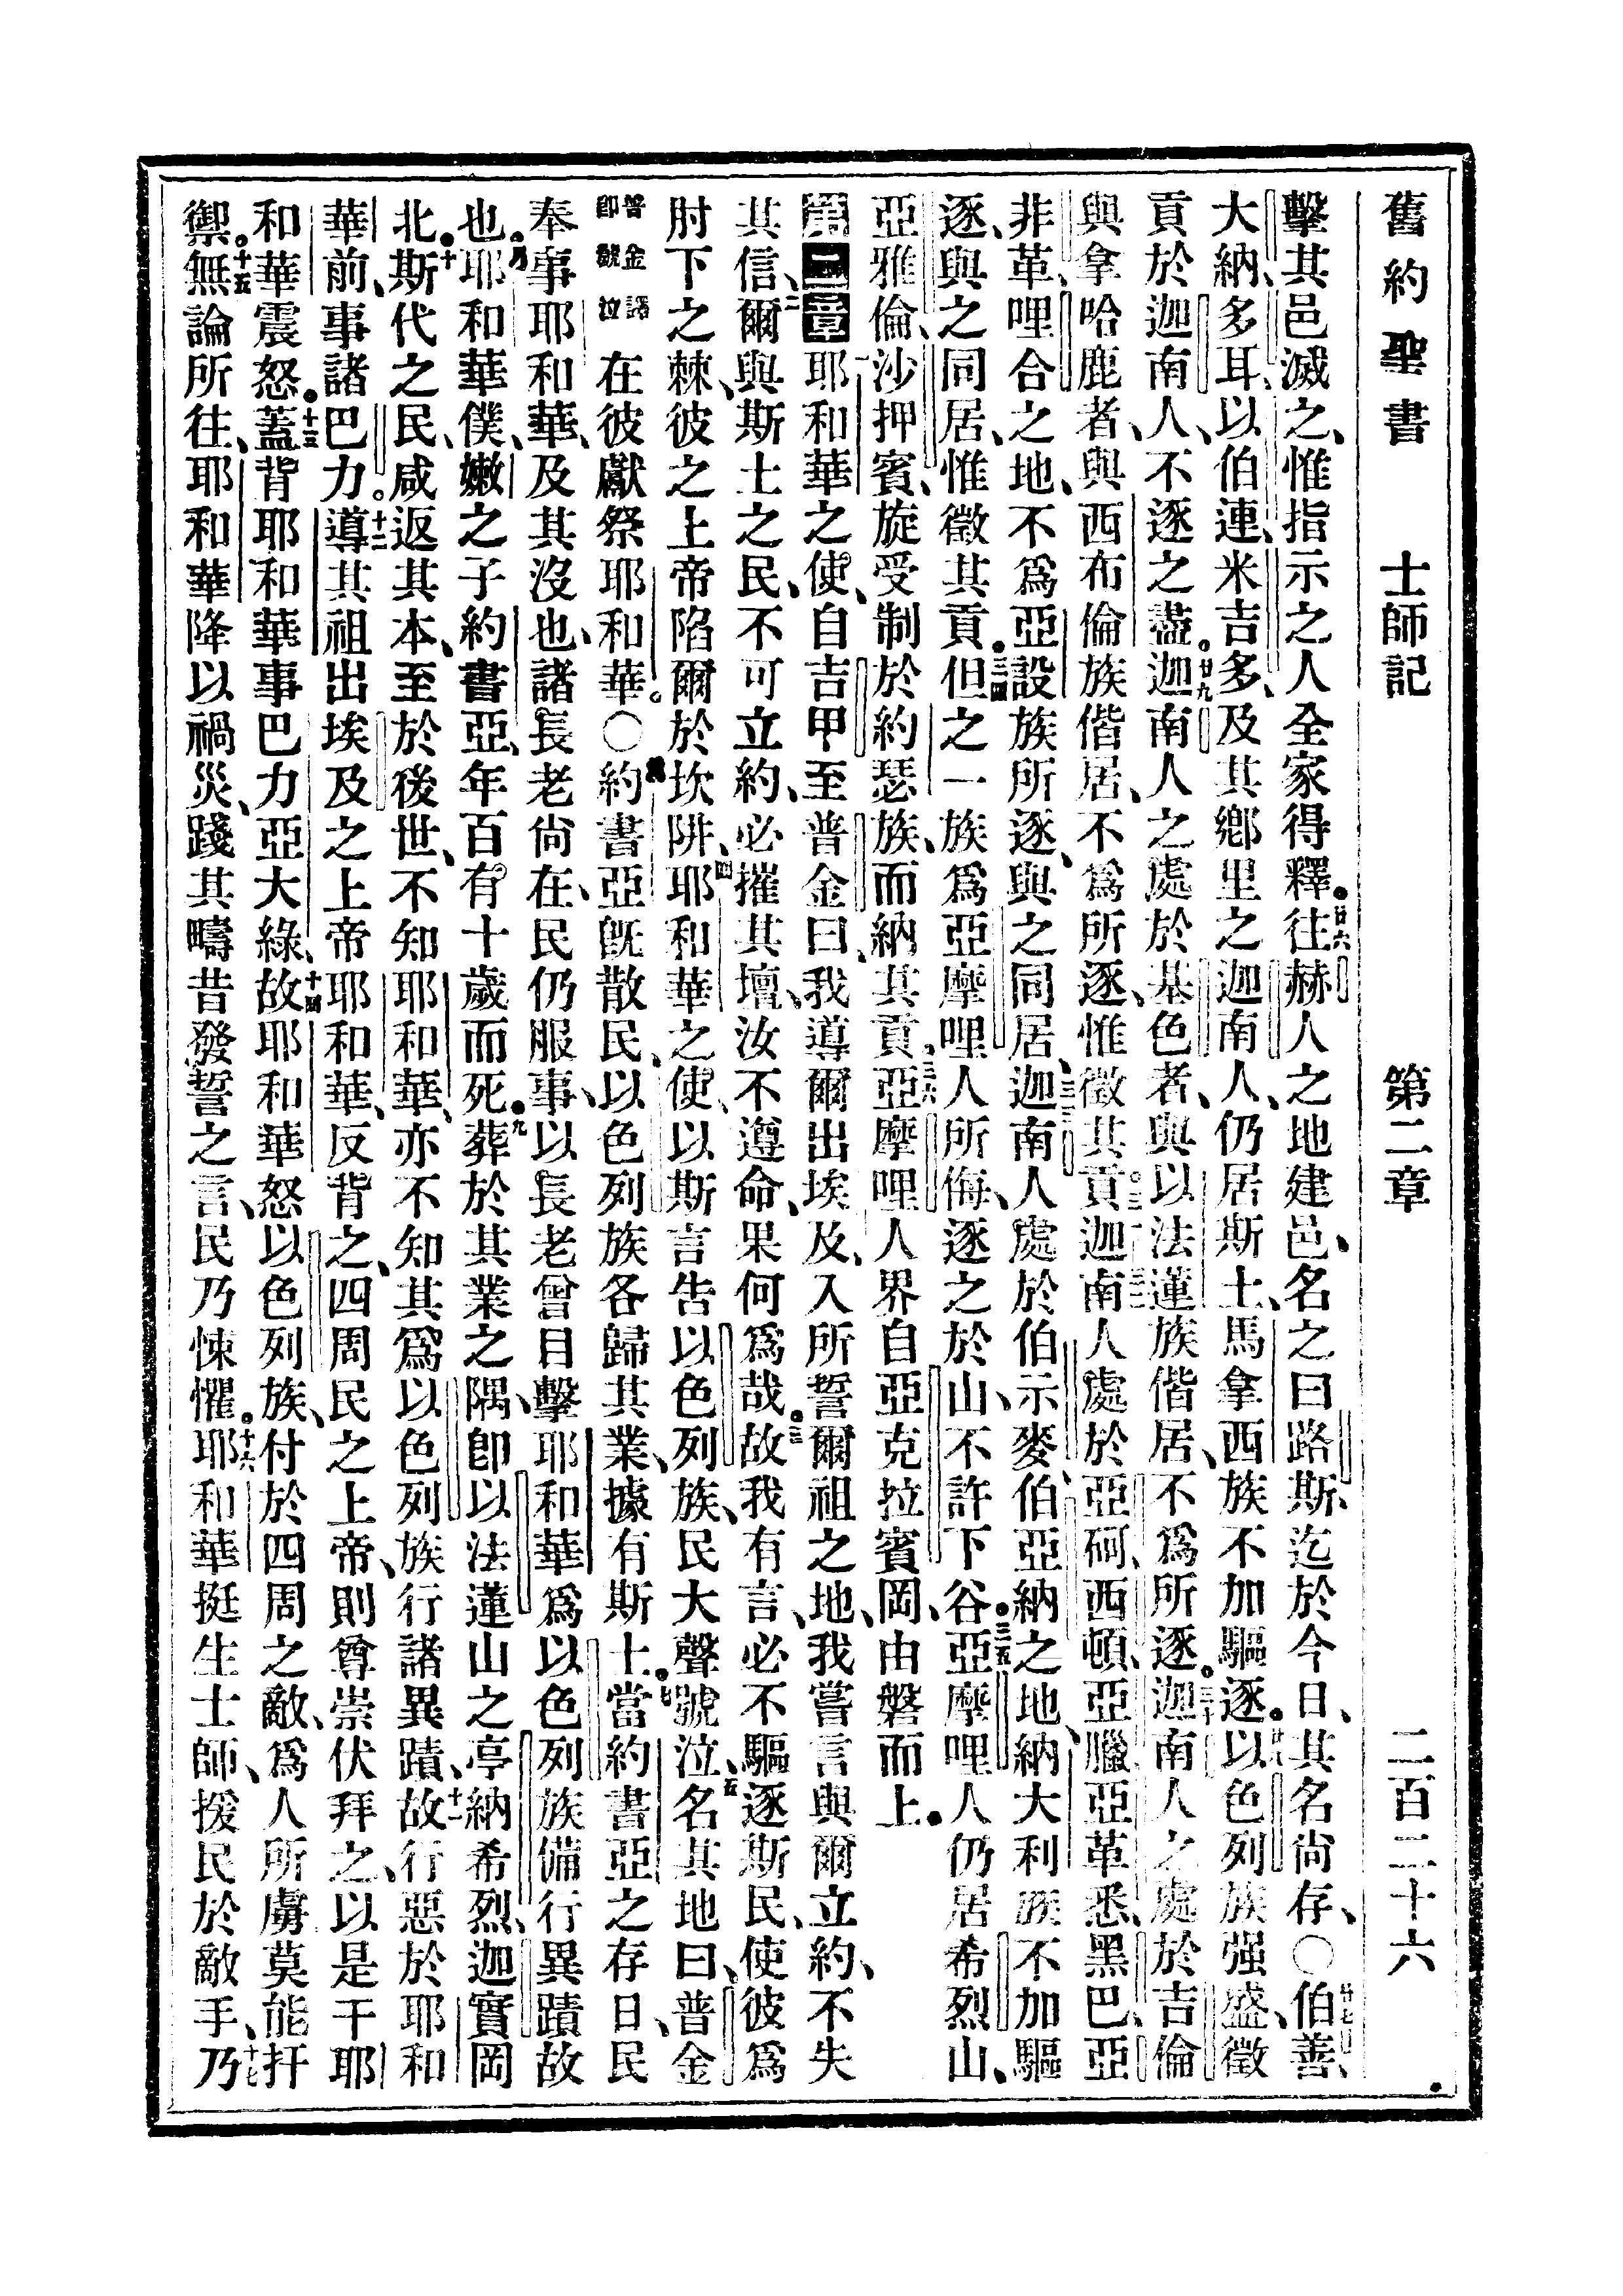 舊約聖書 士師記 第二章 二百二十六
擊其邑滅之、惟指示之人全家得釋。廿六往赫人之地建邑、名之曰路斯、迄於今日、其名尙存、〇廿七伯善、
大納、多耳、以伯連、米吉多、及其鄕里之迦南人、仍居斯土、馬拿西族不加驅逐。廿八以色列族强盛、徵
貢於迦南人、不逐之盡。廿九迦南人之處於基色者、與以法蓮族偕居、不爲所逐。三十迦南人之處於吉倫
與拿哈鹿者、與西布倫族偕居、不爲所逐、惟徵其貢。三一迦南人處於亞砢、西頓、亞臘、亞革悉、黑巴、亞
非革、哩合之地、不爲亞設族所逐、與之同居、三三迦南人處於伯示麥、伯亞納之地、納大利族不加驅
逐、與之同居、惟徵其貢。三四但之一族爲亞摩哩人所侮、逐之於山、不許下谷。三五亞摩哩人仍居希烈山、
亞雅倫、沙押賓、旋受制於約瑟族、而納其貢、三六亞摩哩人界自亞克拉賓岡、由磐而上。
第二章 一耶和華之使、自吉甲至普金曰、我導爾出埃及、入所誓爾祖之地、我嘗言與爾立約、不失
其信、二爾與斯土之民、不可立約、必摧其壇、汝不遵命、果何爲哉。三故我有言、必不驅逐斯民、使彼爲
肘下之棘、彼之上帝陷爾於坎阱、四耶和華之使、以斯言告以色列族、民大聲號泣、五名其地曰、普金
普金譯卽號泣在彼獻祭耶和華。〇六約書亞旣散民、以色列族各歸其業、據有斯土。七當約書亞之存日、民
奉事耶和華、及其沒也、諸長老尙在、民仍服事、以長老曾目擊耶和華爲以色列族備行異蹟故
也。八耶和華僕、嫩之子約書亞、年百有十歲而死。九葬於其業之隅、卽以法蓮山之亭納希烈、迦實岡
北。十斯代之民、咸返其本、至於後世、不知耶和華、亦不知其爲以色列族行諸異蹟、十一故行惡於耶和
華前、事諸巴力。十二導其祖出埃及之上帝耶和華、反背之、四周民之上帝、則尊崇伏拜之、以是干耶
和華震怒。十三蓋背耶和華事巴力亞大綠、十四故耶和華怒以色列族、付於四周之敵、爲人所虜、莫能扞
禦。十五無論所往、耶和華降以禍災、踐其疇昔發誓之言、民乃悚懼。十六耶和華挺生士師、援民於敵手、十七乃